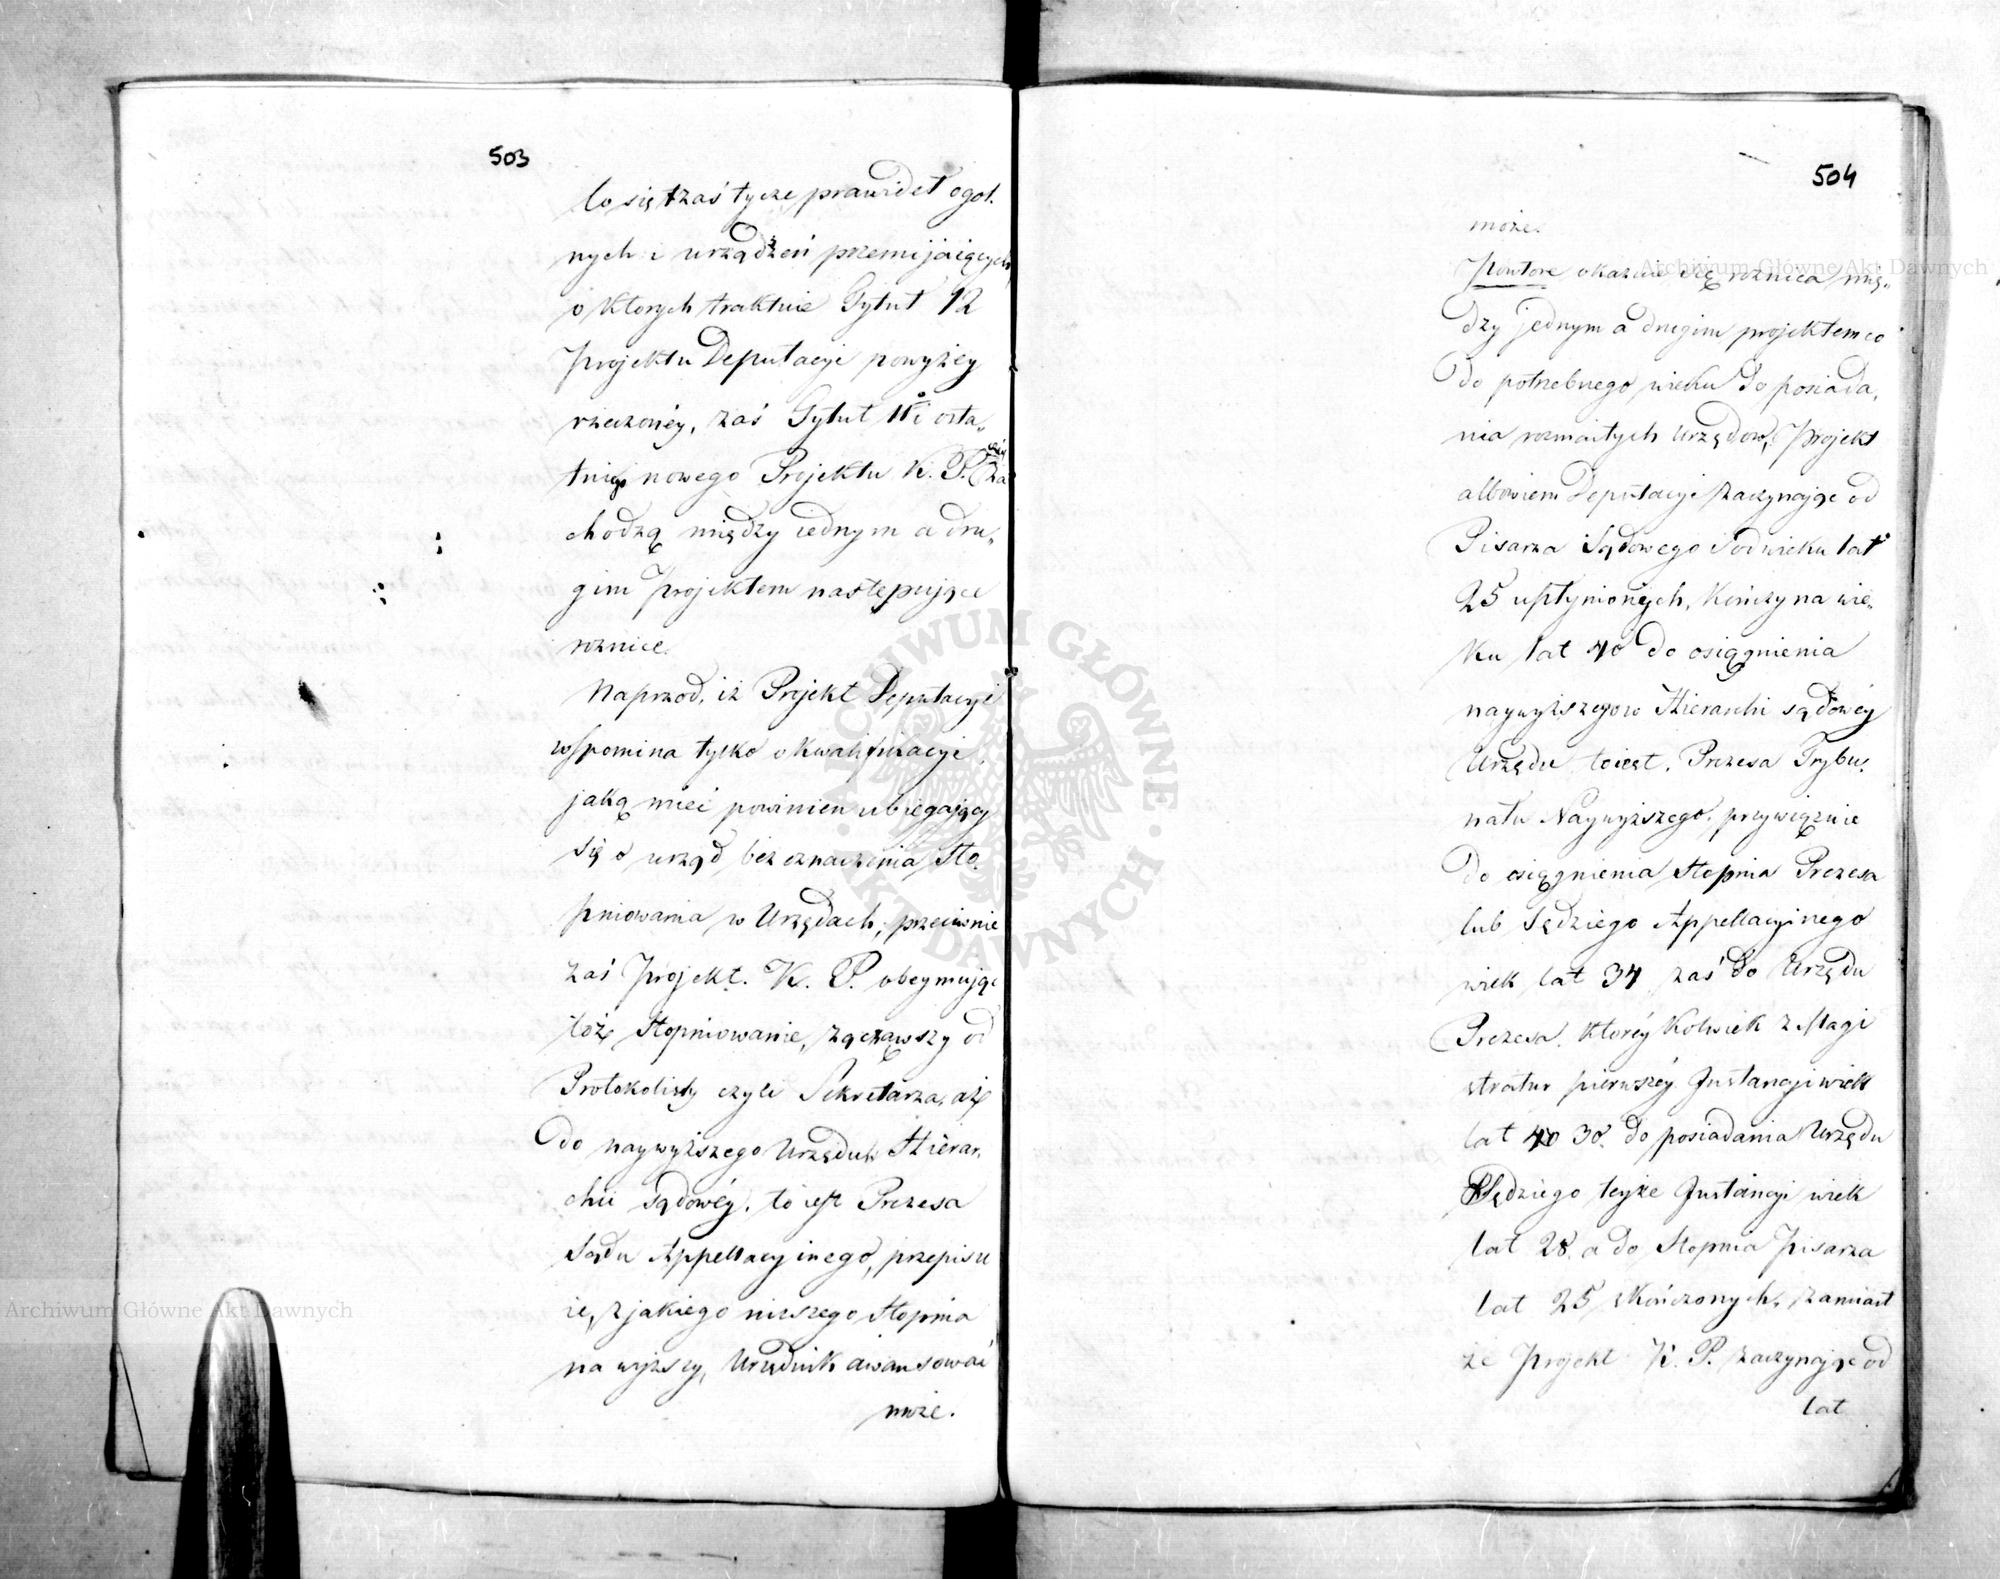 503
Co się zaś tycze prawideł ogol.
nych i urządzeń przemijaiących,
o ktorych traktuie Tytuł 12
Projektu Deputacyi powyżey
rzeczoney, zaś Tytuł 11 i osta„
tni nowego Projektu K. P. za
chodzą między iednym a dru„
gim Projektem następujące
roznice.
Naprzod, iż Projekt Deputacyi
wspomina tylko o kwalifikacyi,
jaką mieć powinien ubiegający
się o urząd bez oznaczenia sto.
pniowania w Urzędach; przeciwnie
zaś Projekt. K. P. obeymując
toż stopniowanie, zacząwszy od
Protokolisty czyli Sekretarza, aż
do naywyższego Urzędu Hierar.
chii sądowéy, to iest Prezesa
Sądu Appellacyinego, przepisu
ie, z jakiego niższego stopnia
na wyższy, Urzędnik awansować
może.
504
może.
Powtore okazuie się roznica mię„
dzy jednym a drugim projektem co
do potrzebnego wieku do posiada,
nia rozmaitych Urzędow; Projekt
albowiem Deputacyi zaczynając od
Pisarza Sądowego i od wieku lat
25 upłynionych, kończy na wie„
ku lat 40 do osiągnienia
naywyższego w Hierarchi sądowéy
Urzędu to iest, Prezesa Trybu.
nału Naywyższego, przywiązuie
do osiągnienia stopnia Prezesa
lub Sędziego Appellacyinego
wiek lat 34 zaś do Urzędu
Prezesa któréy kolwiek z Magi
stratur pierwszéy Instancyi wiek
lat 30. do posiadania Urzędu
Sędziego teyże Instancyi wiek
lat 28. a do Stopnia Pisarza
lat 25 skończonych, zamiast
że Projekt K. P. zaczynając od
lat
Archiwum Główne Akt Dawnych
Archiwum Główne Akt Dawnych
ARCHIWUM GŁÓWNE · AKT DAWNYCH ·